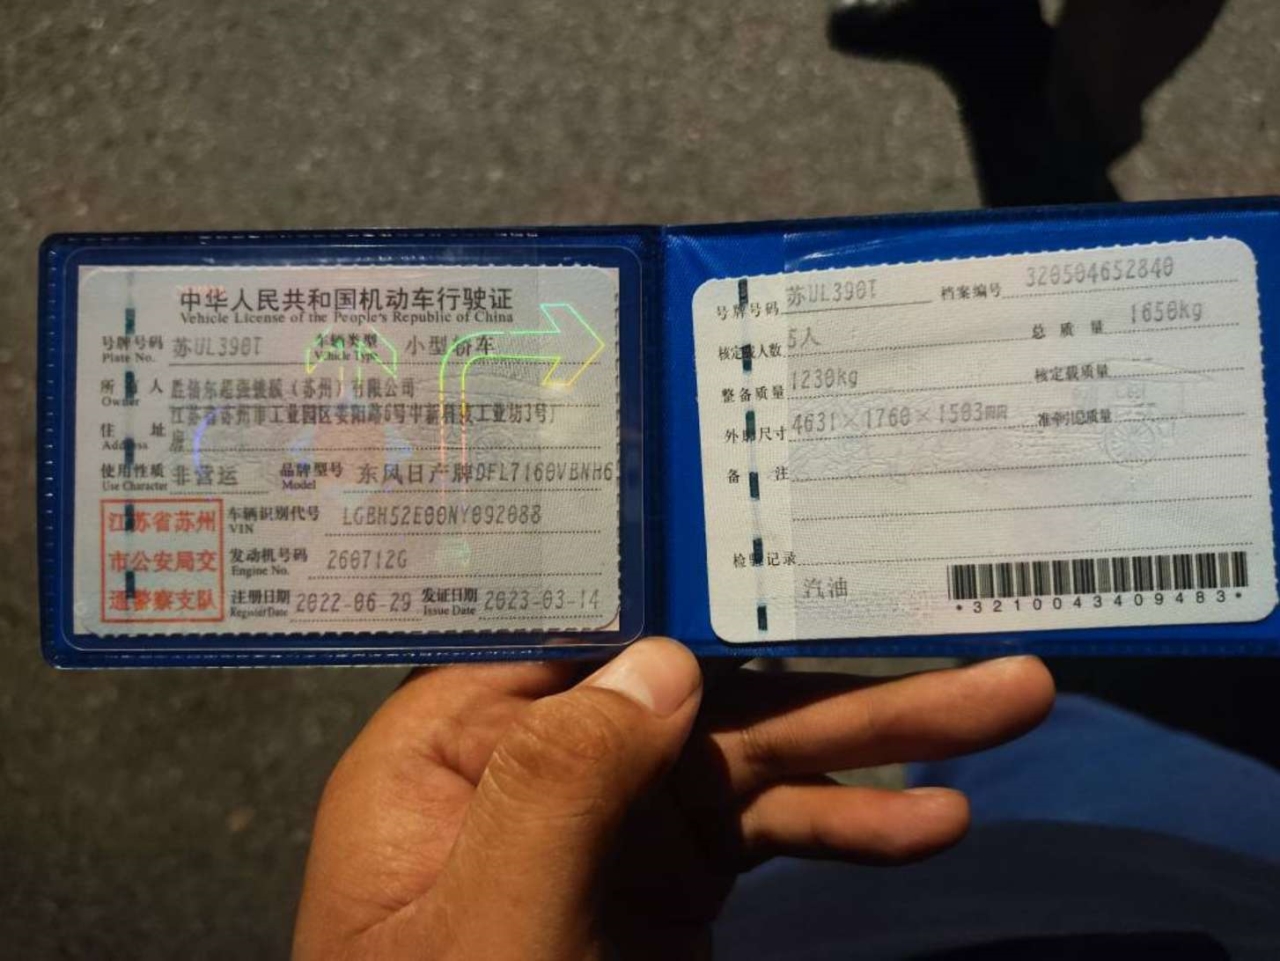 中华人民共和国机动车行驶证
Vehicle License of the People's Republic of China
号牌号码 苏UL390T 车辆类型 小型轿车
Plate No. Vehicle Type
所有人 胜倍尔超强镀膜（苏州）有限公司
Owner
住址 江苏省苏州市工业园区娄阳路6号中新科技工业坊3号厂
Address 房
使用性质 非营运 品牌型号 东风日产牌DFL7160VBNH6
Use Character Model
江苏省苏州
市公安局交
通警察支队
车辆识别代号 LGBH52E00NY092088
VIN
发动机号码 260712G
Engine No.
注册日期 2022-06-29 发证日期 2023-03-14
Register Date Issue Date
号牌号码 苏UL390T 档案编号 320504652840
核定载人数 5人 总质量 1650kg
整备质量 1230kg 核定载质量 --
外廓尺寸 4631×1760×1503mm 准牵引总质量 --
备注
检验记录
汽油
*3210043409483*